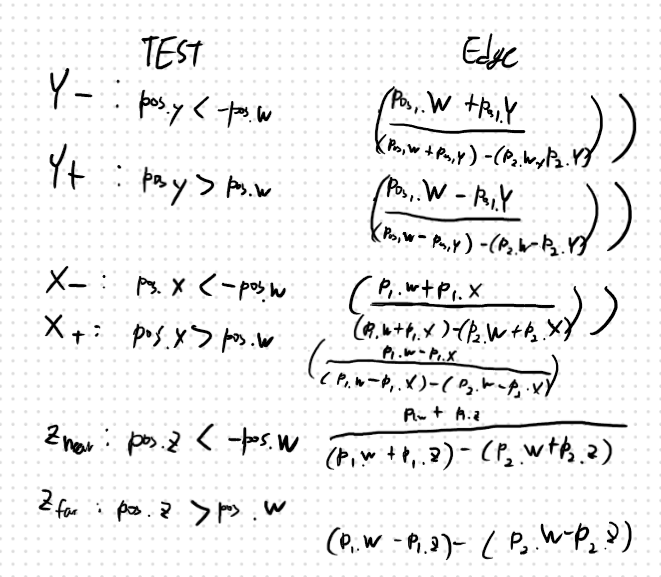 TEST Edge
Y- : pos.y < -pos.w
(pos1.W + pos1.Y
(pos1.W + pos1.Y) - (p2.W + p2.Y)))
Y+ : pos.y > pos.w
(pos1.W - pos1.Y
(pos1.W - pos1.Y) - (p2.W - p2.Y)))
X- : pos.X < -pos.w
(p1.w + p1.X
(p1.w + p1.X) - (p2.W + p2.X)))
X+ : pos.X > pos.w
(p1.w - p1.X
(p1.w - p1.X) - (p2.w - p2.X))
Znear : pos.z < -pos.w
p1.w + p1.z
(p1.w + p1.z) - (p2.w + p2.z)
Zfar : pos.z > pos.w
(p1.W - p1.z) - (p2.W - p2.z)